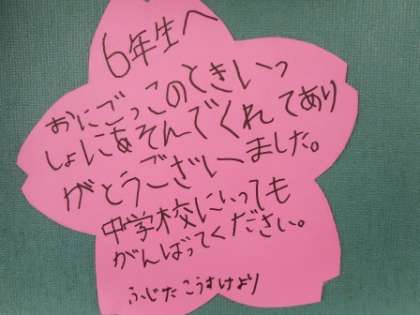 6年生へ
おにごっこのときいっ
しょにあそんでくれてあり
がとうございました。
中学校にいっても
がんばってください。
ふじたこうすけより